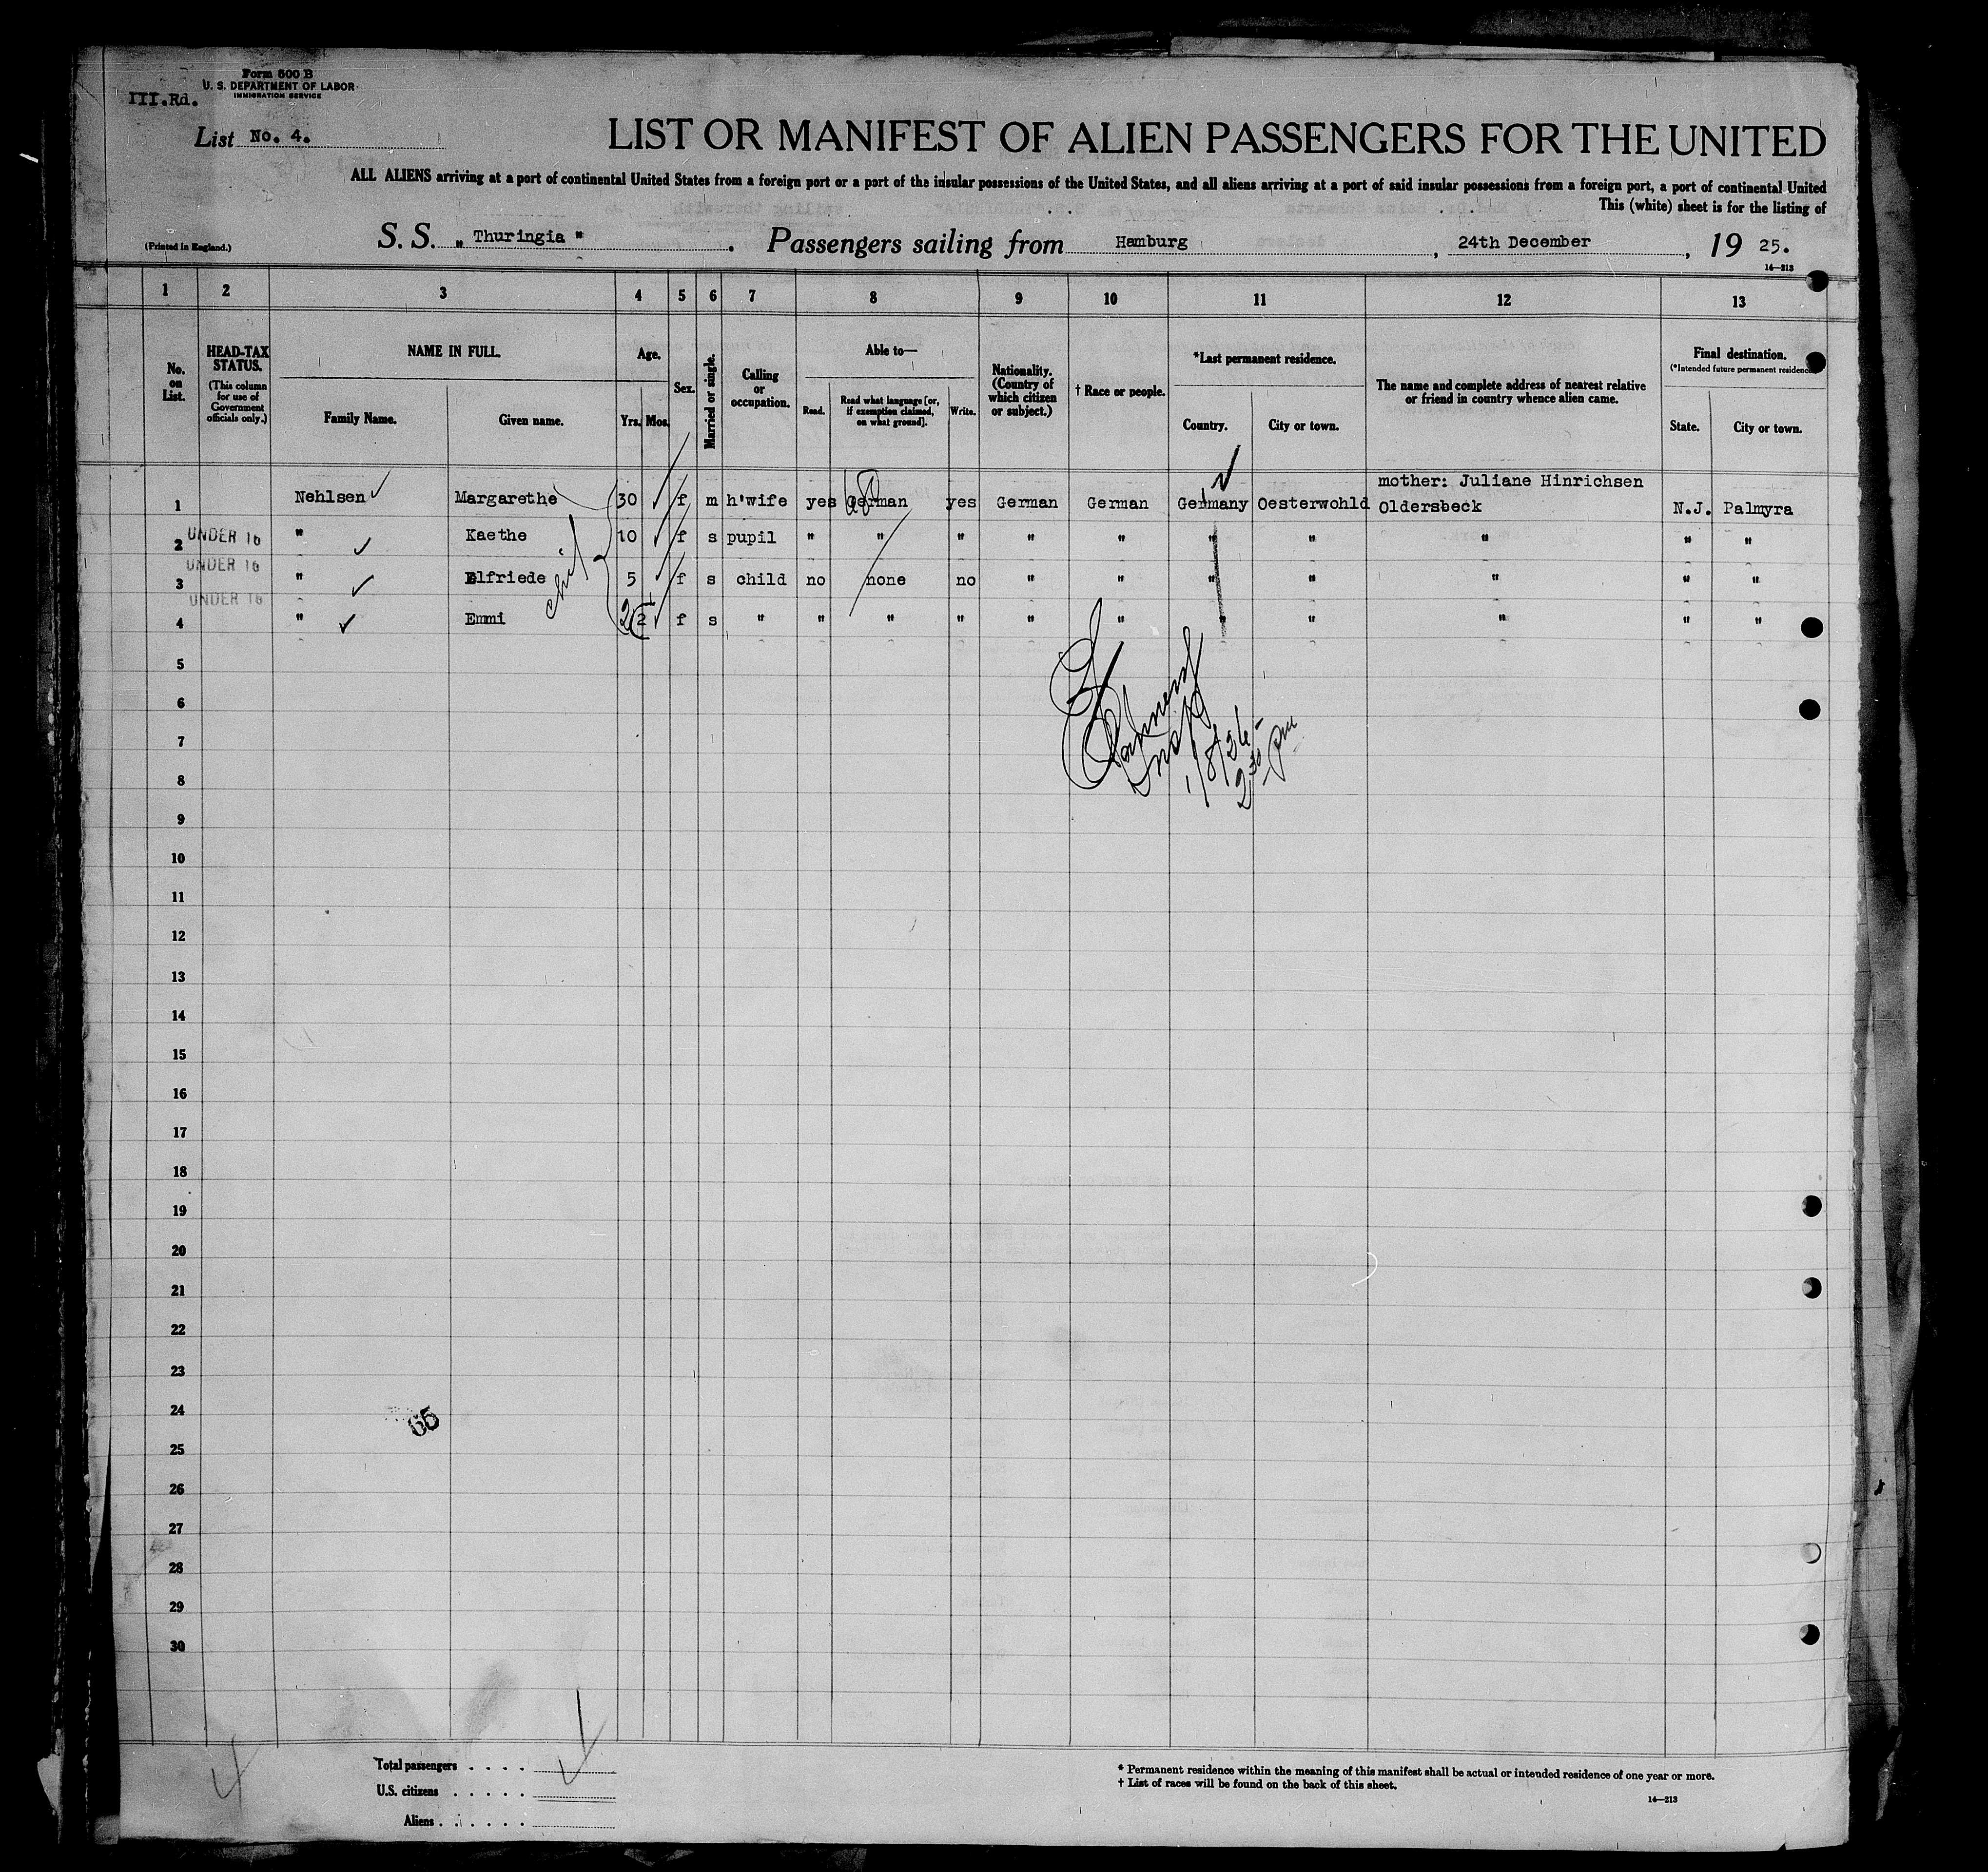 Form 500 B
U. S. DEPARTMENT OF LABOR
IMMIGRATION SERVICE
III.Rd.
List No. 4.
LIST OR MANIFEST OF ALIEN PASSENGERS FOR THE UNITED
ALL ALIENS arriving at a port of continental United States from a foreign port or a port of the insular possessions of the United States, and all aliens arriving at a port of said insular possessions from a foreign port, a port of continental United
This (white) sheet is for the listing of
(Printed in England.) S. S. " Thuringia " . Passengers sailing from Hamburg , 24th December , 19 25.
14—213
1 2 3 4 5 6 7 8 9 10 11 12 13
No. on List.
HEAD-TAX STATUS.
(This column for use of Government officials only.)
NAME IN FULL.
Family Name. Given name.
Age.
Yrs. Mos.
Sex.
Married or single.
Calling or occupation.
Able to—
Read. Read what language [or, if exemption claimed, on what ground]. Write.
Nationality. (Country of which citizen or subject.)
† Race or people.
*Last permanent residence.
Country. City or town.
The name and complete address of nearest relative or friend in country whence alien came.
Final destination.
(*Intended future permanent residence
State. City or town.
mother: Juliane Hinrichsen
1 Nehlsen Margarethe 30 f m h'wife yes German yes German German Germany Oesterwohld Oldersbeck N.J. Palmyra
2 UNDER 16 " Kaethe 10 f s pupil " " " " " " " " " "
3 UNDER 16 " Elfriede 5 f s child no none no " " " " " " "
4 UNDER 16 " Emmi 2 2 f s " " " " " " " " " " "
5
6
7
1/8/26
2 30 pm
8
9
10
11
12
13
14
15
16
17
18
19
20
21
22
23
24
65
25
26
27
28
29
30
Total passengers . . . .
U.S. citizens . . . . .
Aliens . . . . . .
* Permanent residence within the meaning of this manifest shall be actual or intended residence of one year or more.
† List of races will be found on the back of this sheet.
14—213